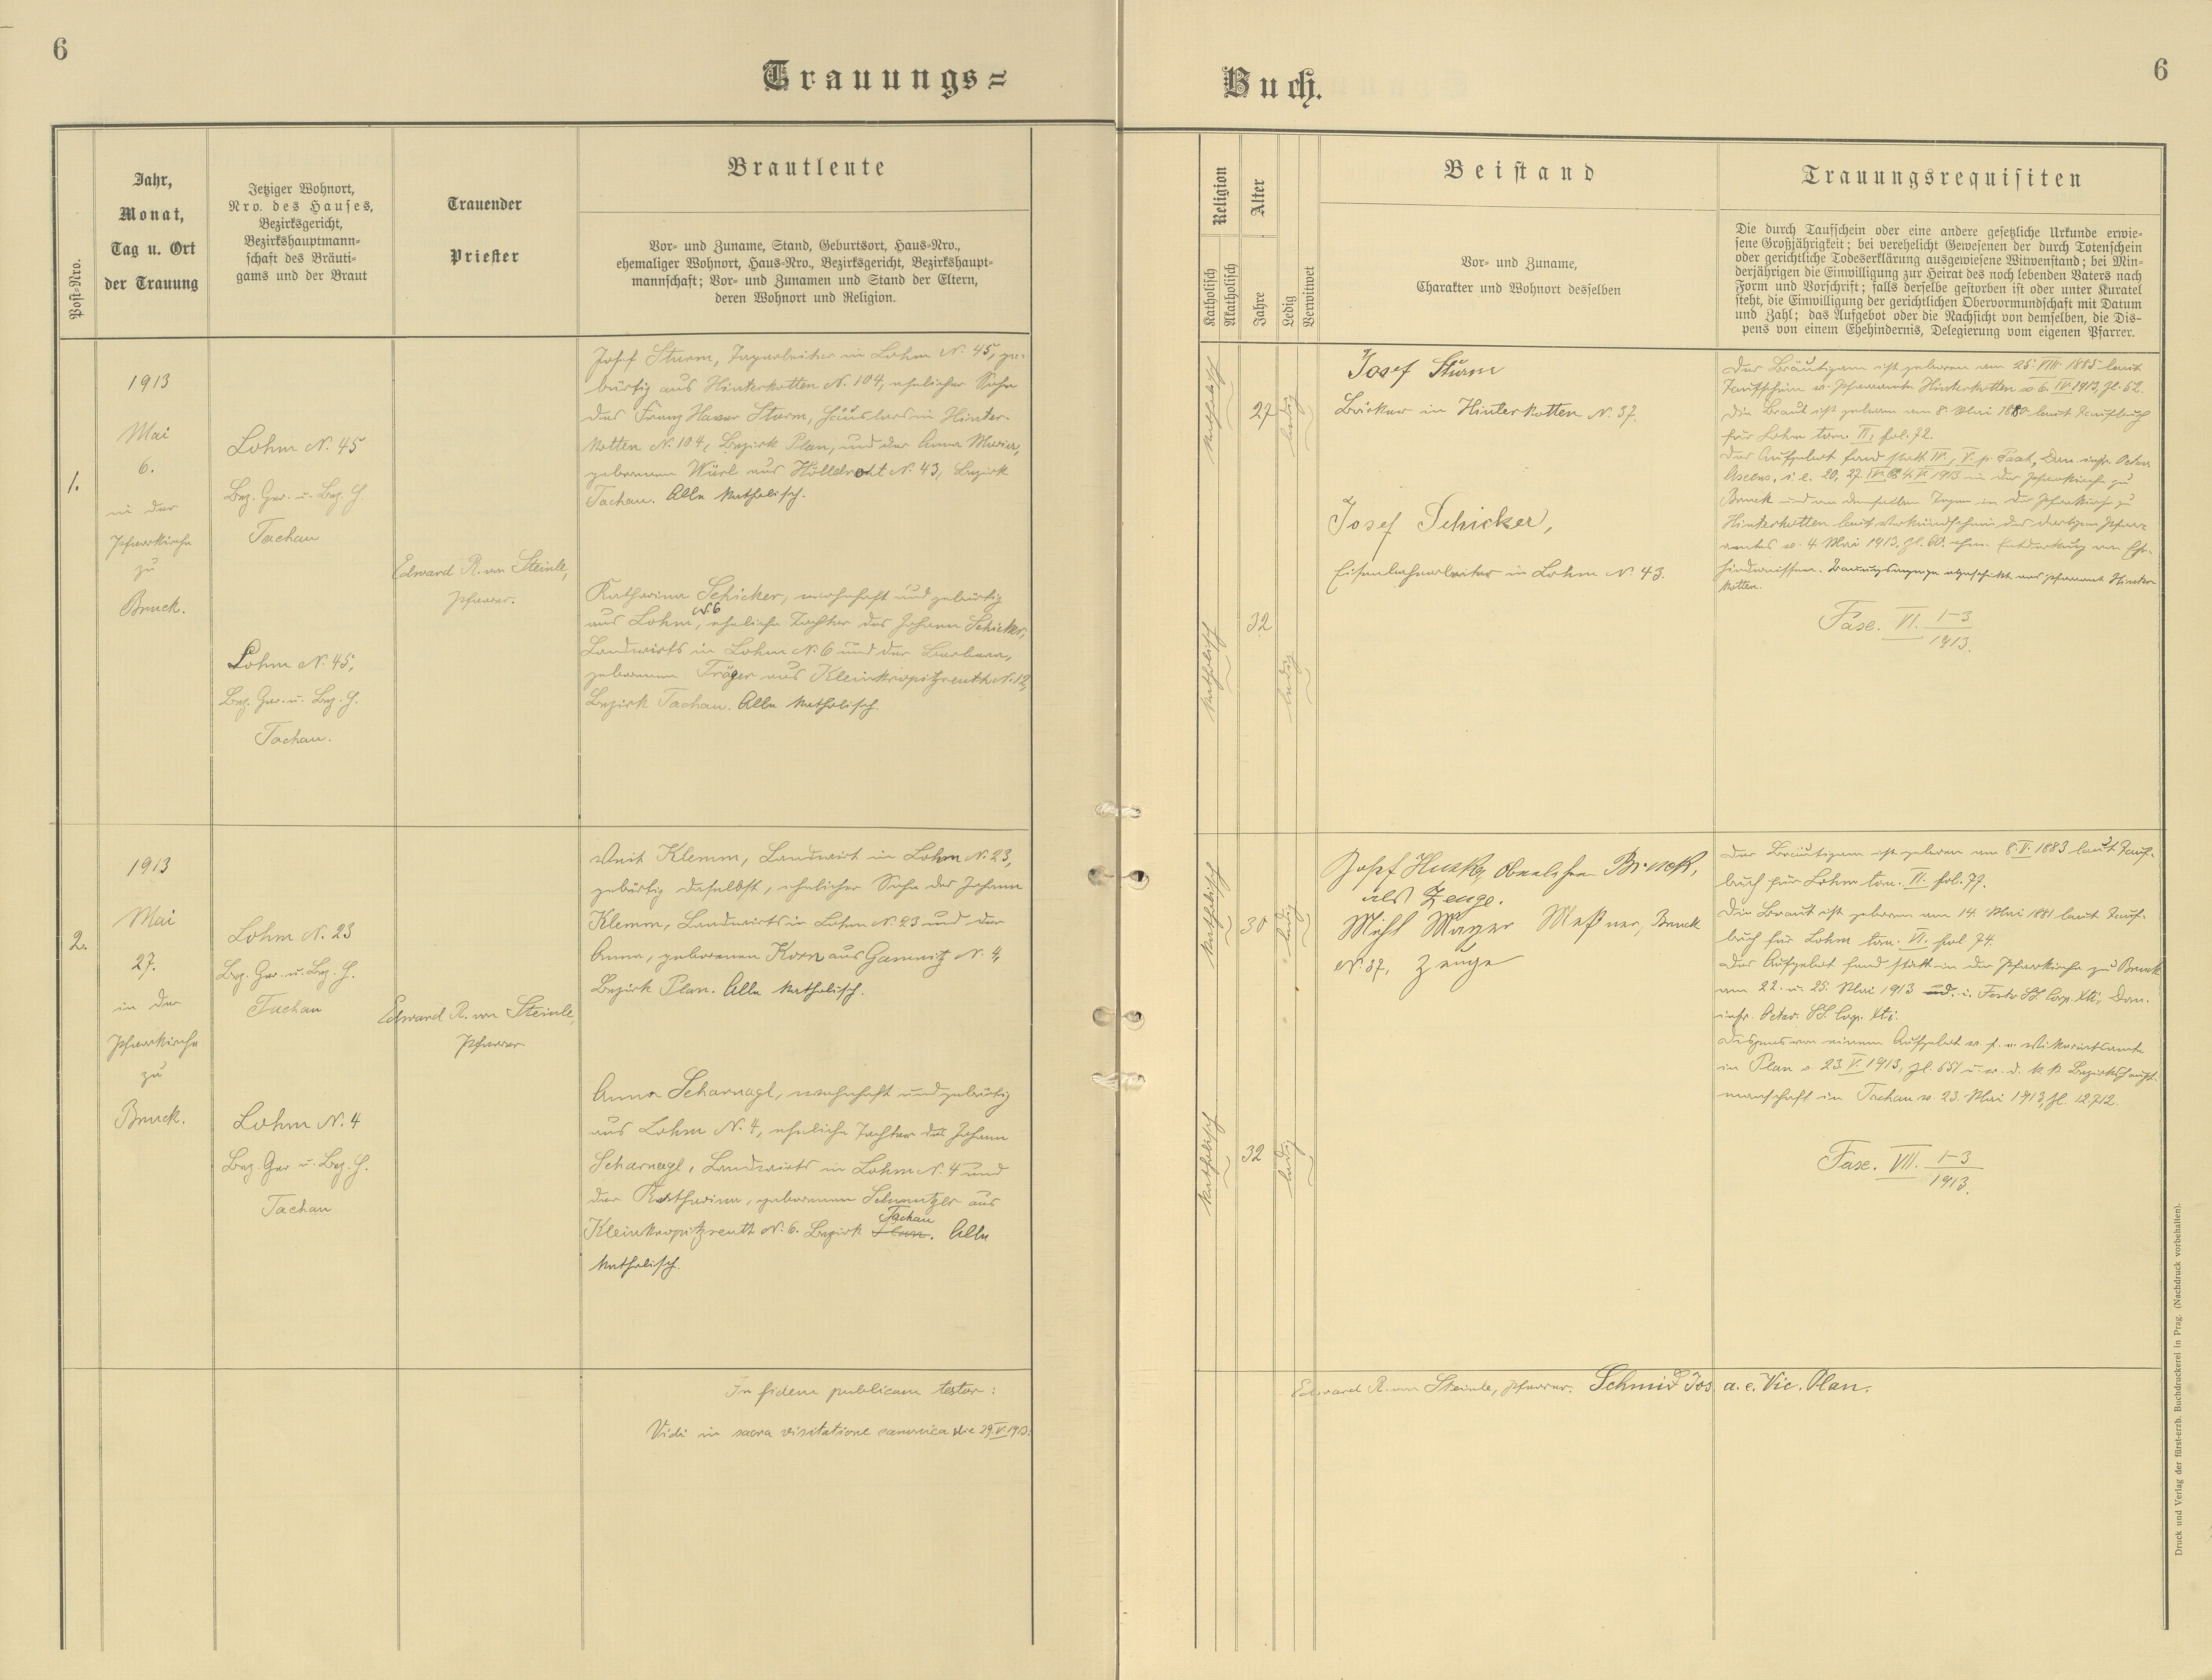 6
Trauungs=
Jahr,
Monat,
Tag u. Ort
der Trauung
Post-Nro.
Jetziger Wohnort,
Nro. des Hauses,
Bezirksgericht,
Bezirkshauptmann-
schaft des Bräuti-
gams und der Braut
Trauender
Priester
Brautleute
Vor- und Zuname, Stand, Geburtsort, Haus-Nro.,
ehemaliger Wohnort, Haus-Nro., Bezirksgericht, Bezirkshaupt-
mannschaft; Vor- und Zunamen und Stand der Eltern,
deren Wohnort und Religion.
1.
1913
Mai
6.
in der
Pfarrkirche
zu
Bruck.
Lohm N. 45
Bez. Ger. u. Bez. H.
Tachau
Lohm N. 45,
Bez. Ger. u. Bez. H.
Tachau.
Edward R. von Steinle,
Pfarrer.
Josef Sturm, Tagarbeiter in Lohm N. 45, ge-
bürtig aus Hinterkotten N. 104, ehelicher Sohn
des Franz Xaver Sturm, Häuslers in Hinter-
kotten N. 104, Bezirk Plan, und der Anna Maria,
geborenen Würl aus N. 43, Bezirk
Tachau. Alle katholisch.
Katharina Schicker, wohnhaft und gebürtig
aus Lohm N. 6, eheliche Tochter des Johann Schicker,
Landwirts in Lohm N. 6 und der Barbara,
geborenen Träger aus Kleinkropitzreuth N. 12,
Bezirk Tachau. Alle katholisch.
2.
1913
Mai
27.
in der
Pfarrkirche
zu
Bruck.
Lohm N. 23
Bez. Ger. u. Bez. H.
Tachau
Lohm N. 4
Bez. Ger. u. Bez. H.
Tachau
Edward R. von Steinle,
Pfarrer
Veit Klemm, Landwirt in Lohm N. 23,
gebürtig daselbst, ehelicher Sohn des Johann
Klemm, Landwirts in Lohm N. 23 und der
Anna, geborenen Korn aus Gamnitz N. 4,
Bezirk Plan. Alle katholisch.
Anna Scharnagl, wohnhaft und gebürtig
aus Lohm N. 4, eheliche Tochter des Johann
Scharnagl, Landwirts in Lohm N. 4 und
der Katharina, geborenen Schmutzer aus
Kleinkropitzreuth N. 6. Bezirk Plan Tachau. Alle
katholisch.
In fidem publicam testor:
Vidi in sacra visitatione canonica die 29. V. 1913.
6
Buch.
Religion
Katholisch
Akatholisch
Alter
Jahre
Ledig
Verwitwet
Beistand
Vor- und Zuname,
Charakter und Wohnort desselben
Trauungsrequisiten
Die durch Taufschein oder eine andere gesetzliche Urkunde erwie-
sene Großjährigkeit; bei verehelicht Gewesenen der durch Totenschein
oder gerichtliche Todeserklärung ausgewiesene Witwenstand; bei Min-
derjährigen die Einwilligung zur Heirat des noch lebenden Vaters nach
Form und Vorschrift; falls derselbe gestorben ist oder unter Kuratel
steht, die Einwilligung der gerichtlichen Obervormundschaft mit Datum
und Zahl; das Aufgebot oder die Nachsicht von demselben, die Dis-
pens von einem Ehehindernis, Delegierung vom eigenen Pfarrer.
katholisch
27
ledig
katholisch
32
ledig
Josef Sturm
Bäcker in Hinterkotten N. 37.
Josef Schicker,
Eisenbahnarbeiter in Lohm N. 43.
Der Bräutigam ist geboren am 25. VIII. 1885 laut
Taufschein v. Pfarramte Hinterkotten v. 6. IV. 1913, Zl. 52.
Die Braut ist geboren am 8. Mai 1880 laut Taufbuch
für Lohm tom. II, fol. 72.
Das Aufgebot fand statt IV., V. p. Pasch, Dom. infr. Octav.
Ascens, i. e. 20, 27. IV. & 4. V. 1913 in der Pfarrkirche zu
Bruck und an denselben Tagen in der Pfarrkirche zu
Hinterkotten laut Verkündschein des dortigen Pfarr-
amtes v. 4 Mai 1913, Zl. 60. ohne Entdeckung von Ehe-
hindernissen. Trauungsanzeige abgeschickt ans Pfarramt Hinter-
kotten.
Fasc. VI. 1-3
1913.
katholisch
30
ledig
katholisch
32
ledig
Josef Oberlehrer Bruck,
als Zeuge.
Michl Mayer Meßner, Bruck
N. 37, Zeuge
Der Bräutigam ist geboren am 8. V. 1883 laut Tauf-
buch für Lohm tom. II. fol. 77.
Die Braut ist geboren am 14. Mai 1881 laut Tauf-
buch für Lohm tom. VI. fol 74.
Das Aufgebot fand statt in der Pfarrkirche zu Bruck
am 22. u. 25. Mai 1913 d. i. Festo SS. Corp. Xti, Dom.
infr. Octav. SS. Corp. Xti.
Dispens von einem Aufgebot v. f. e. Vikariatsamte
in Plan v. 23. V. 1913, Zl. 651 u. v. d. k. k. Bezirkshaupt-
mannschaft in Tachau v. 23. Mai 1913, Zl. 12.712.
Fasc. VII. 1-3
1913.
Edward R. von Steinle, Pfarrer. Schmid Jos. a. e. Vic. Plan.
Druck und Verlag der fürst-erzb. Buchdruckerei in Prag. (Nachdruck vorbehalten).